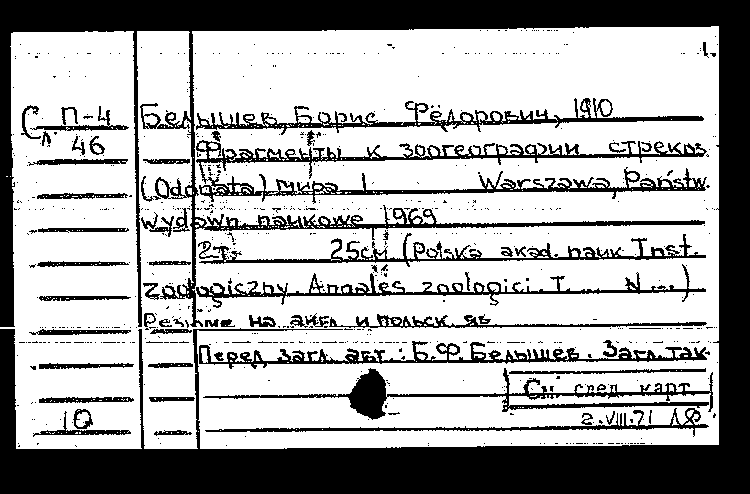 1.
С П-4
л 46
Белышев, Борис Фёдорович, 1910
Фрагменты к зоогеографии стрекоз
(Odonata) мира 1 Warszawa, Państw.
wydawn. naukowe 1969
2 т. 25см (Polska akad. nauk Inst.
zoologiczny. Annales zoologici. T. ... N ...)
Резюме на англ и польск. яз
Перед загл. авт.: Б.Ф. Белышев. Загл. так-
См. след. карт.
10
2.VIII.71 ЛФ